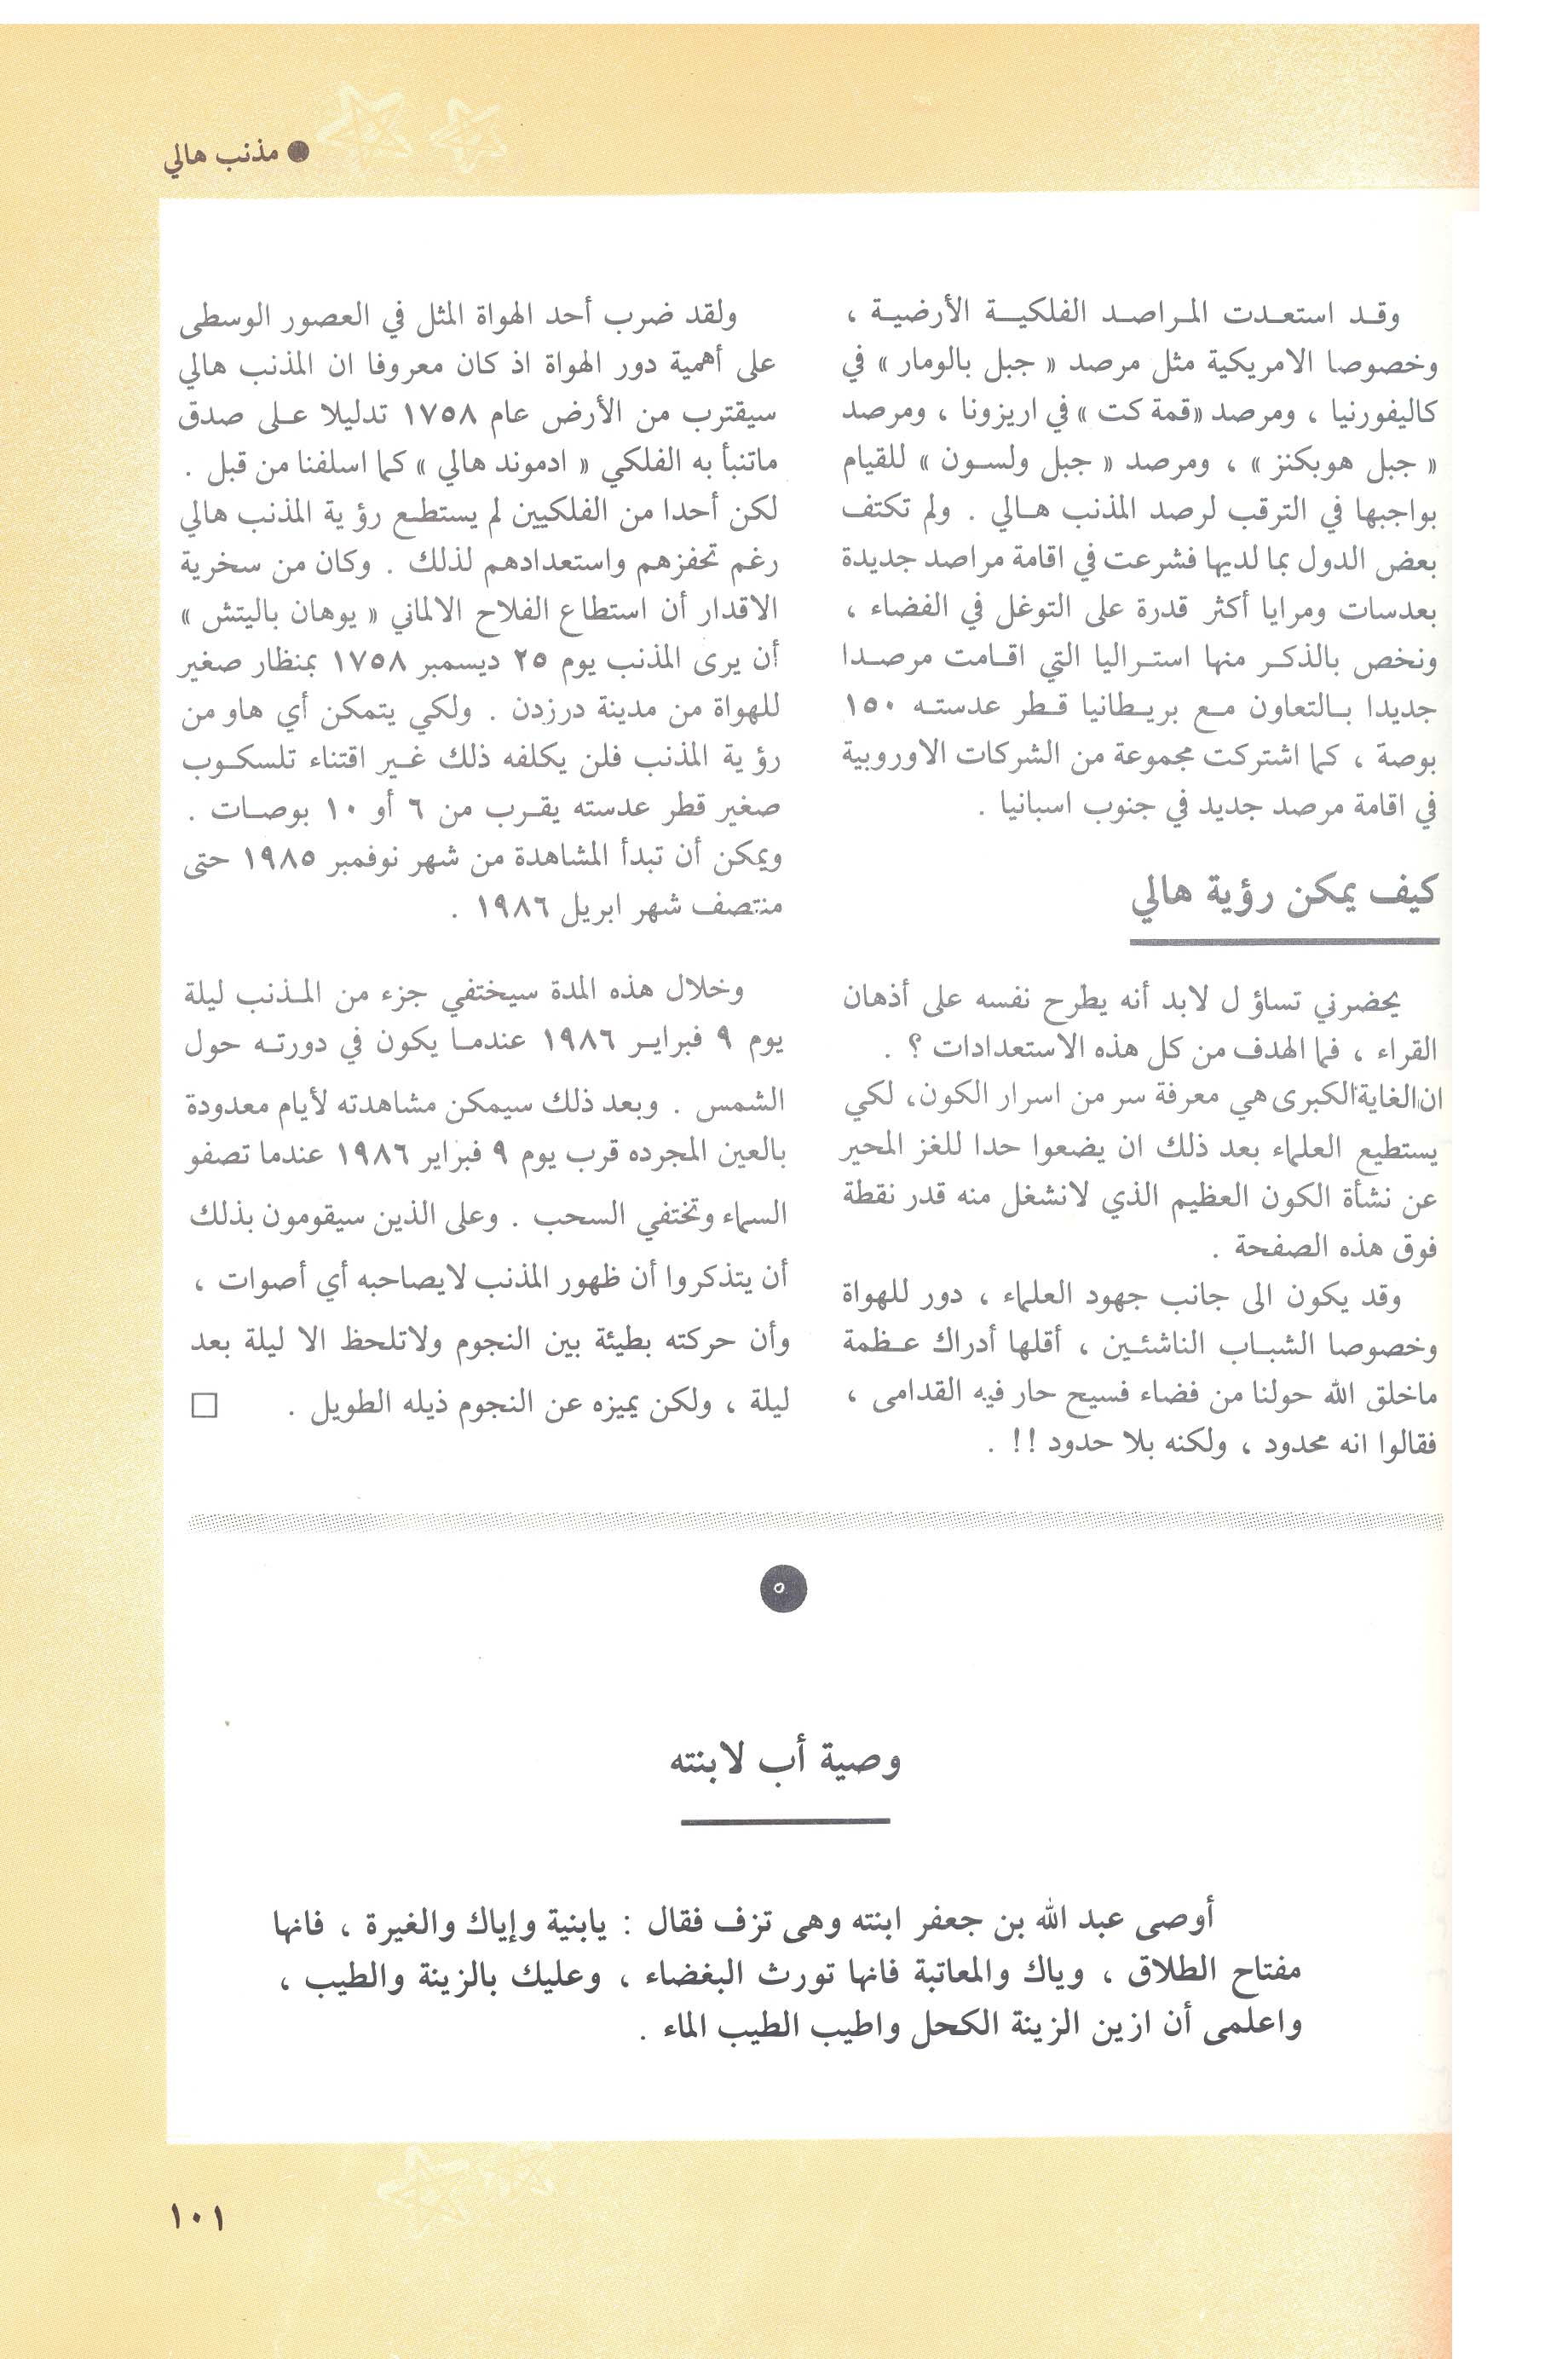 ● مذنب هالي
وقد استعدت المراصد الفلكية الأرضية ،
وخصوصا الامريكية مثل مرصد « جبل بالومار » في
كاليفورنيا ، ومرصد «قمة كت » في اريزونا ، ومرصد
« جبل هوبكنز » ، ومرصد « جبل ولسون » للقيام
بواجبها في الترقب لرصد المذنب هالي . ولم تكتف
بعض الدول بما لديها فشرعت في اقامة مراصد جديدة
بعدسات ومرايا أكثر قدرة على التوغل في الفضاء ،
ونخص بالذكر منها استراليا التي اقامت مرصدا
جديدا بالتعاون مع بريطانيا قطر عدسته ١٥٠
بوصة ، كما اشتركت مجموعة من الشركات الاوروبية
في اقامة مرصد جديد في جنوب اسبانيا .
كيف يمكن رؤية هالي
يحضرني تساؤ ل لابد أنه يطرح نفسه على أذهان
القراء ، فما الهدف من كل هذه الاستعدادات ؟ .
ان الغاية الكبرى هي معرفة سر من اسرار الكون، لكي
يستطيع العلماء بعد ذلك ان يضعوا حدا للغز المحير
عن نشأة الكون العظيم الذي لانشغل منه قدر نقطة
فوق هذه الصفحة .
وقد يكون الى جانب جهود العلماء ، دور للهواة
وخصوصا الشباب الناشئين ، أقلها أدراك عظمة
ماخلق الله حولنا من فضاء فسيح حار فيه القدامى ،
فقالوا انه محدود ، ولكنه بلا حدود !! .
ولقد ضرب أحد الهواة المثل في العصور الوسطى
على أهمية دور الهواة اذ كان معروفا ان المذنب هالي
سيقترب من الأرض عام ١٧٥٨ تدليلا على صدق
ماتنبأ به الفلكي « ادموند هالي » كما اسلفنا من قبل .
لكن أحدا من الفلكيين لم يستطع رؤ ية المذنب هالي
رغم تحفزهم واستعدادهم لذلك . وكان من سخرية
الاقدار أن استطاع الفلاح الالماني « يوهان باليتش »
أن يرى المذنب يوم ٢٥ ديسمبر ١٧٥٨ بمنظار صغير
للهواة من مدينة درزدن . ولكي يتمكن أي هاو من
رؤ ية المذنب فلن يكلفه ذلك غير اقتناء تلسكوب
صغير قطر عدسته يقرب من ٦ أو ١٠ بوصات .
ويمكن أن تبدأ المشاهدة من شهر نوفمبر ١٩٨٥ حتى
منتصف شهر ابريل ١٩٨٦ .
وخلال هذه المدة سيختفي جزء من المذنب ليلة
يوم ٩ فبراير ١٩٨٦ عندما يكون في دورته حول
الشمس . وبعد ذلك سيمكن مشاهدته لأيام معدودة
بالعين المجرده قرب يوم ٩ فبراير ١٩٨٦ عندما تصفو
السماء وتختفي السحب . وعلى الذين سيقومون بذلك
أن يتذكروا أن ظهور المذنب لايصاحبه أي أصوات ،
وأن حركته بطيئة بين النجوم ولاتلحظ الا ليلة بعد
ليلة ، ولكن يميزه عن النجوم ذيله الطويل . □
٥
وصية أب لابنته
أوصى عبد الله بن جعفر ابنته وهى تزف فقال : يابنية وإياك والغيرة ، فانها
مفتاح الطلاق ، وياك والمعاتبة فانها تورث البغضاء ، وعليك بالزينة والطيب ،
واعلمى أن ازين الزينة الكحل واطيب الطيب الماء .
١٠١